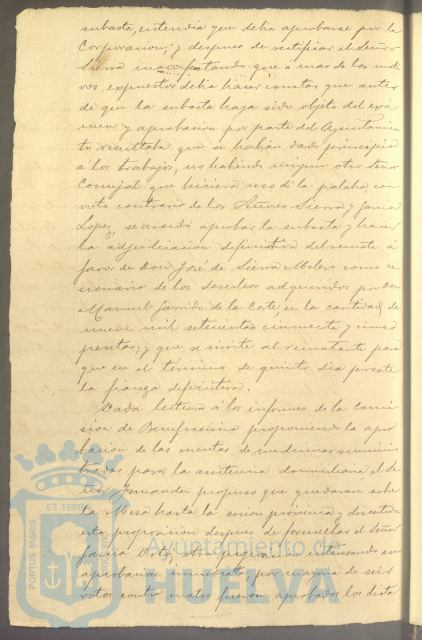 subasta, entendia que debia aprobarse por la
Corporacion; y despues de rectificar el señor
Sierra manifestando que á mas de los moti
vos, expuestos debia hacer constar que antes
de que la subasta haya sido objeto del exá
men y aprobacion por parte del Ayuntamien
to resultaba que se habian dado principio
á los trabajos, no habiendo ningun otro señor
Concejal que hiciera uso de la palabra, con
voto contrario de los Señores Sierra y Garcia
Lopez, se acordó aprobar la subasta y hacer
la adjudicacion definitiva del remate á
favor de Don José de Sierra Melero como ce
sionario de los derechos adquiridos por Don
Manuel Garrido de la Corte, en la cantidad de
nueve mil setecientas cincuenta y cinco
pesetas; y que se invite al rematante para
que en el término de quinto dia preste
la fianza definitiva.
Dada lectura á los informes de la Comi
sion de Beneficencia proponiendo la apro
bacion de las cuentas de medicinas suminis
tradas para la asistencia domiciliaria el Se
ñor Fernandez propuso que quedaran sobre
la Mesa hasta la sesion próxima y discutida
esta proposicion despues de
Garcia Ortiz
aprobacion inmediata, por mayoria de seis
votos contra cuatro fueron aprobados los dictá
PORTUS MARIS ET TERRAE CUSTODIA
Ayuntamiento de
HUELVA